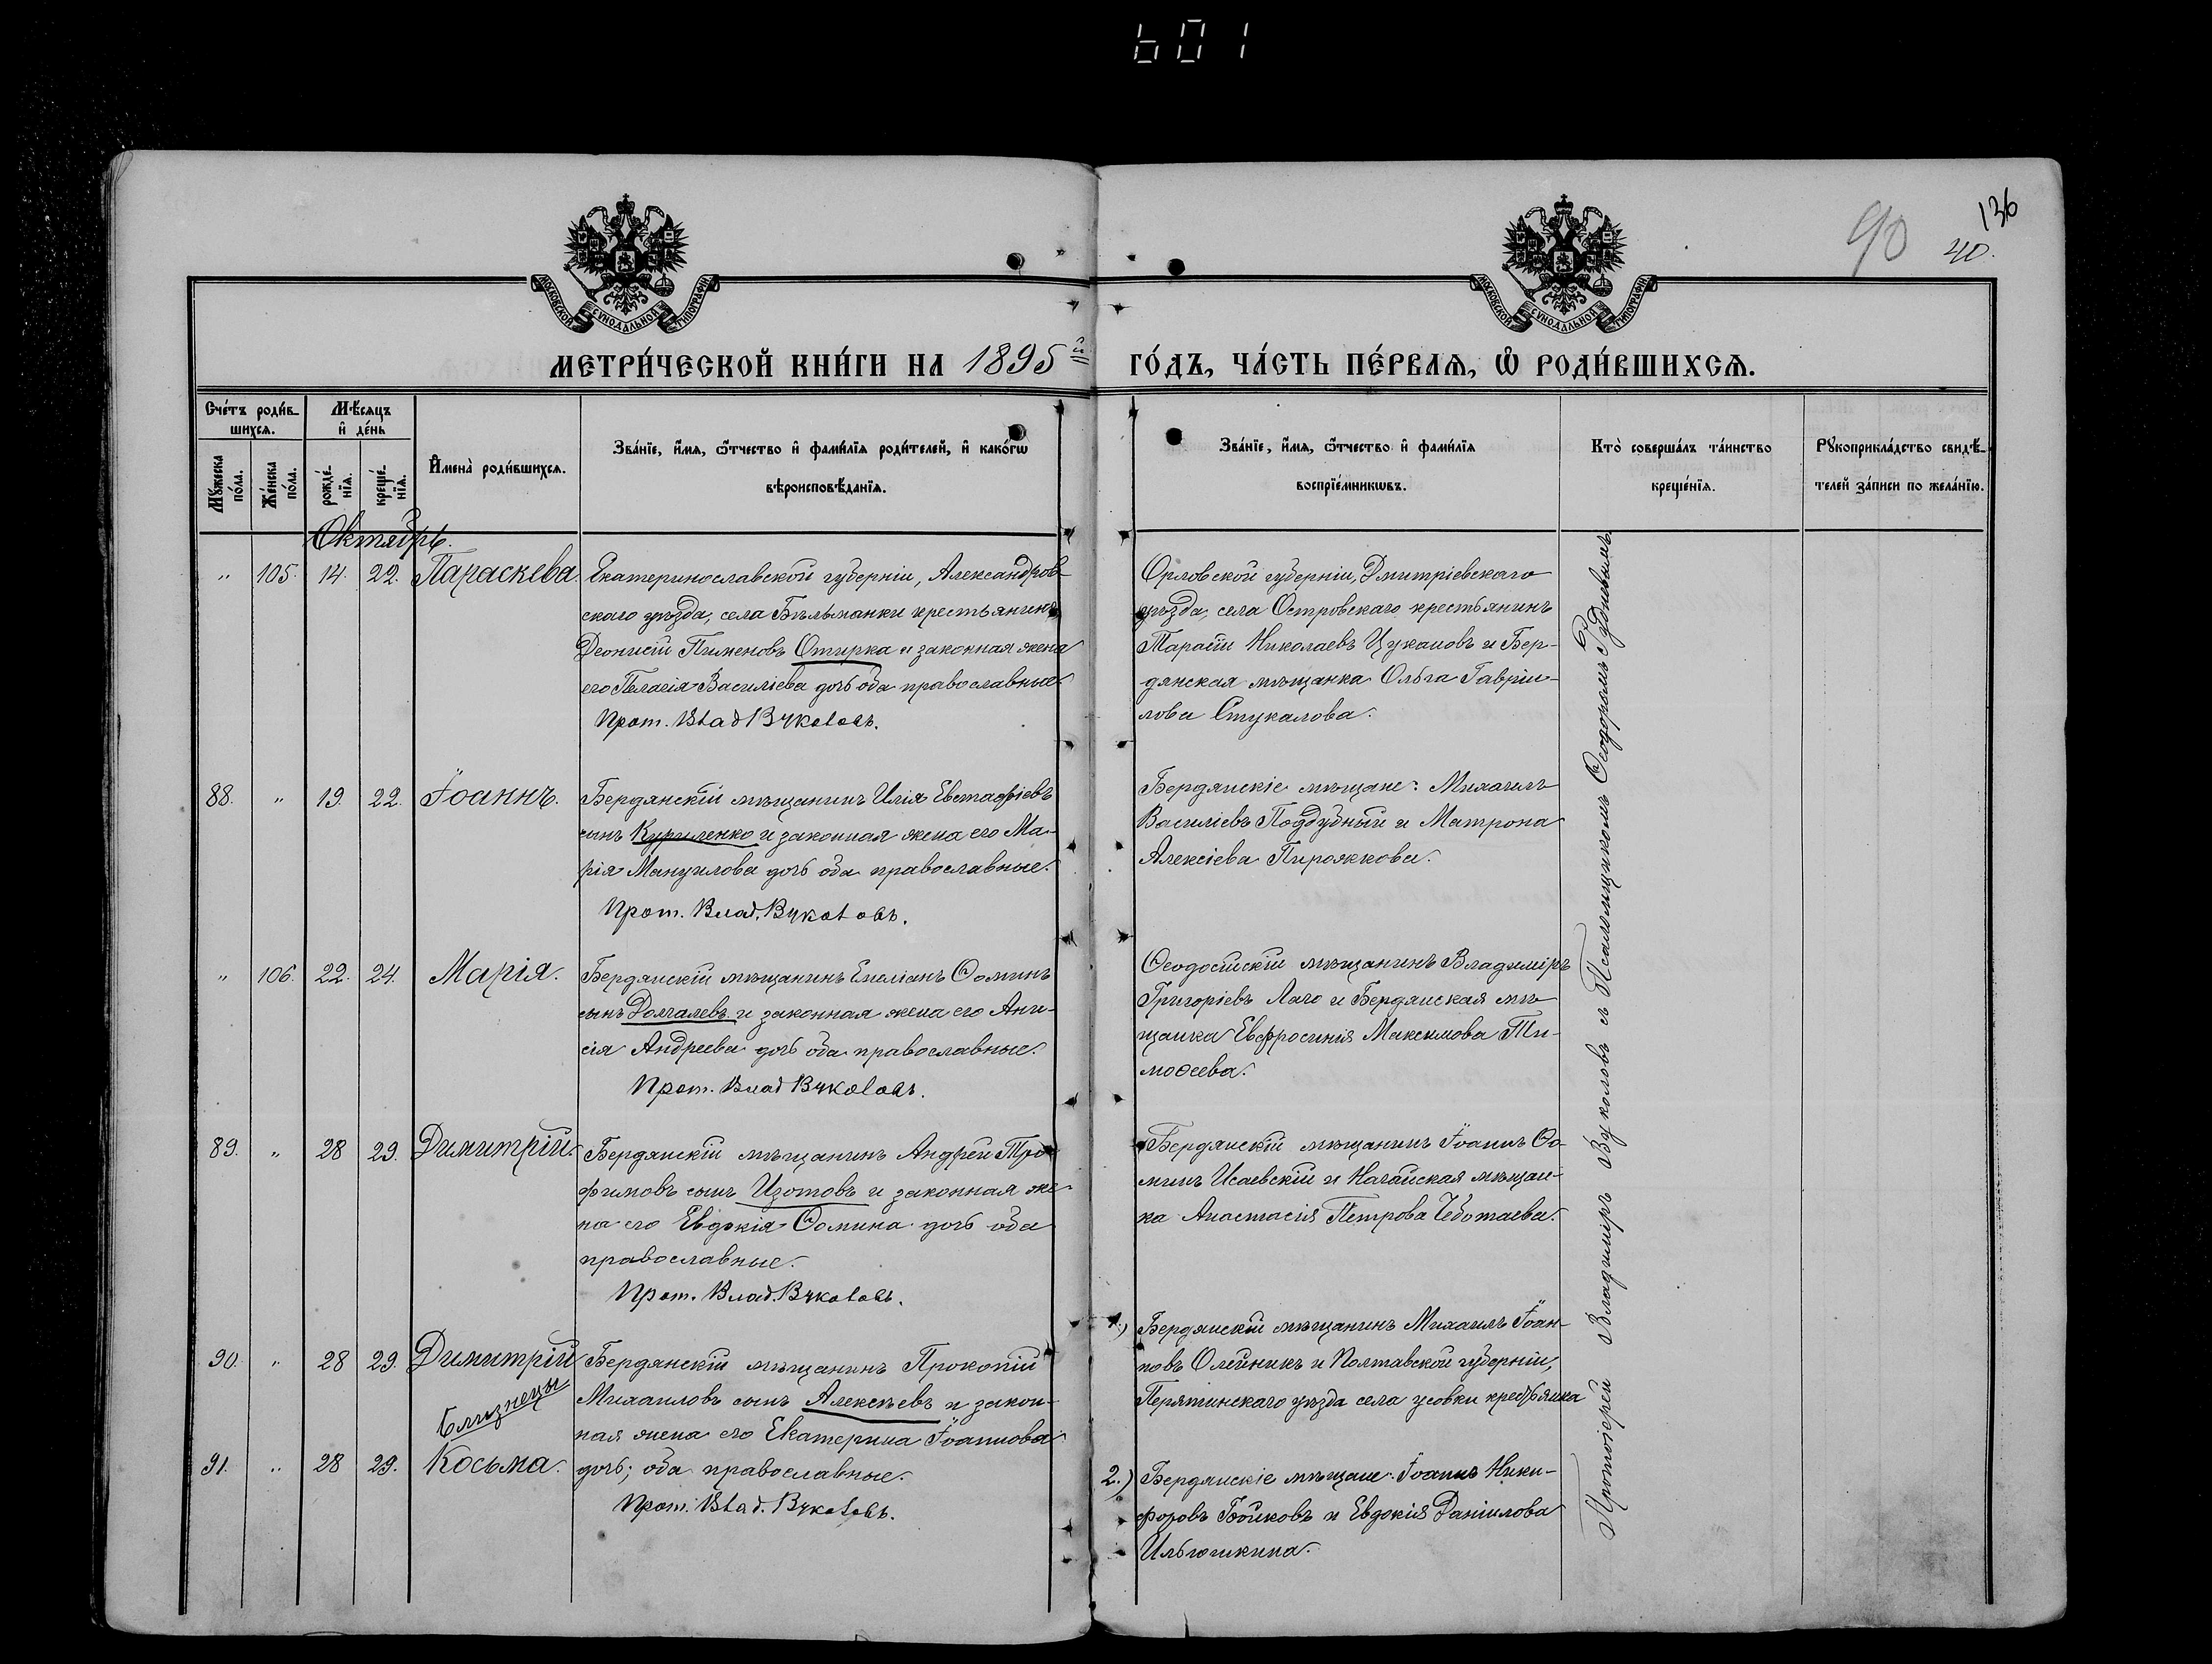 601
136
90
40.
МОСКОВСКОЙ СѴНОДАЛЬНОЙ ТИПОГРАФІИ
МОСКОВСКОЙ СѴНОДАЛЬНОЙ ТИПОГРАФІИ
МЕТРИ́ЧЕСКОЙ КНИ́ГИ НА 1895й ГО́ДЪ, ЧА́СТЬ ПЕ́РВАѦ, Ѡ РОДИ́ВШИХСѦ.
Сче́тъ роди́в-
шихсѧ.
Мѣ́сѧцъ
и҆ де́нь
Мꙋжеска
по́ла.
Же́нска
по́ла.
рожде́-
нїѧ.
креще́-
нїѧ.
И҆мена̀ роди́вшихсѧ.
Зва́нїе, и҆́мѧ, ѻ҆́тчество и҆ фами́лїѧ роди́телей, и҆ како́гѡ
вѣроисповѣ́данїѧ.
Зва́нїе, и҆́мѧ, ѻ҆́тчество и҆ фами́лїѧ
воспрїе́мникѡвъ.
Кто̀ соверша́лъ та́инство
креще́нїѧ.
Рꙋкоприкла́дство свидѣ́-
телей за́писи по жела́нїю.
Октябрь.
" 105. 14. 22. Параскева.
Екатеринославской губерніи, Александров-
скаго уѣзда, села Бѣльманки крестьянинъ
Деонисій Пименовъ Отирка и законная жена
его Пелагія Василіева дочь оба православные.
Прот. Влад Вуколовъ.
Орловской губерніи, Дмитріевскаго
уѣзда, села Островскаго крестьянинъ
Тарасій Николаевъ Цукановъ и Бер-
дянская мѣщанка Ольга Гавріи-
лова Стукалова.
88. " 19. 22. Іоаннъ.
Бердянскій мѣщанинъ Илія Евстафіевъ
сынъ Куриленко и законная жена его Ма-
рія Мануилова дочь оба православные.
Прот. Влад. Вуколовъ.
Бердянскіе мѣщане: Михаилъ
Василіевъ Поддубный и Матрона
Алексіева Пирожкова.
" 106. 22. 24. Марія.
Бердянскій мѣщанинъ Емеліанъ Ѳоминъ
сынъ Долгалевъ и законная жена его Ани-
сія Андреева дочь оба православные.
Прот. Влад Вуколовъ.
Ѳеодосійскій мѣщанинъ Владиміръ
Григоріевъ Лаго и Бердянская мѣ-
щанка Евфросинія Максимова Ти-
моѳеева.
89. " 28 29. Димитрій.
Бердянскій мѣщанинъ Андрей Тро-
фимовъ сынъ Изотовъ и законная же-
на его Евдокія Ѳомина дочь оба
православные.
Прот. Влад. Вуколовъ.
Бердянскій мѣщанинъ Іоаннъ Ѳо-
минъ Исаевскій и Ногайская мѣщан-
ка Анастасія Петрова Чеботаева.
90. " 28 29. Димитрій
близнецы
91. " 28 29. Косьма.
Бердянскій мѣщанинъ Прокопій
Михаиловъ сынъ Алексѣевъ и закон-
ная жена его Екатерина Іоаннова
дочь; оба православные.
Прот. Влад. Вуколовъ.
1.) Бердянскій мѣщанинъ Михаилъ Іоан-
новъ Олейникъ и Полтавской губерніи,
Пирятинскаго уѣзда села Усовки крестьянка
2.) Бердянскіе мѣщане: Іоаннъ Ники-
форовъ Бойковъ и Евдокія Даніилова
Ильюшкина.
Протоіерей Владимиръ Вуколовъ съ Псаломщикомъ Ѳеодоромъ